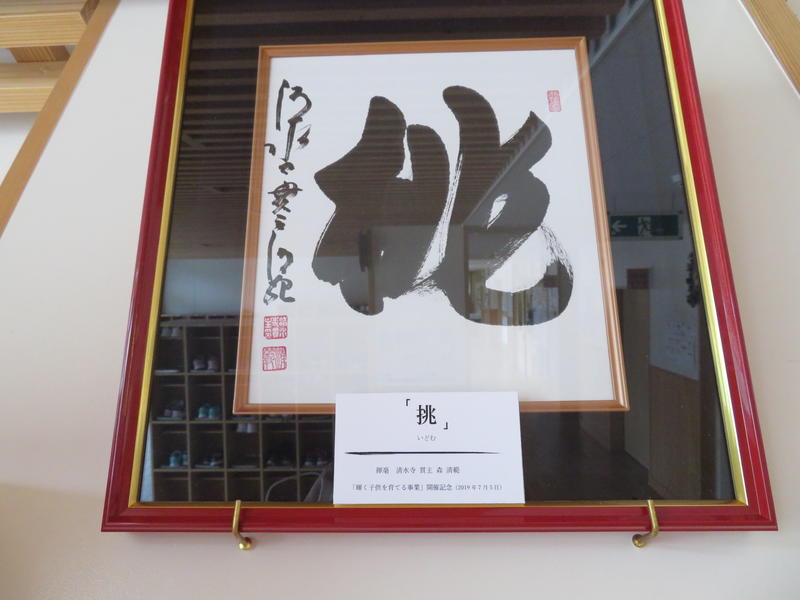 挑
清水貫主清範
「挑」
いどむ
揮毫 清水寺 貫主 森 清範
「輝く子供を育てる事業」開催記念（2019年7月5日）